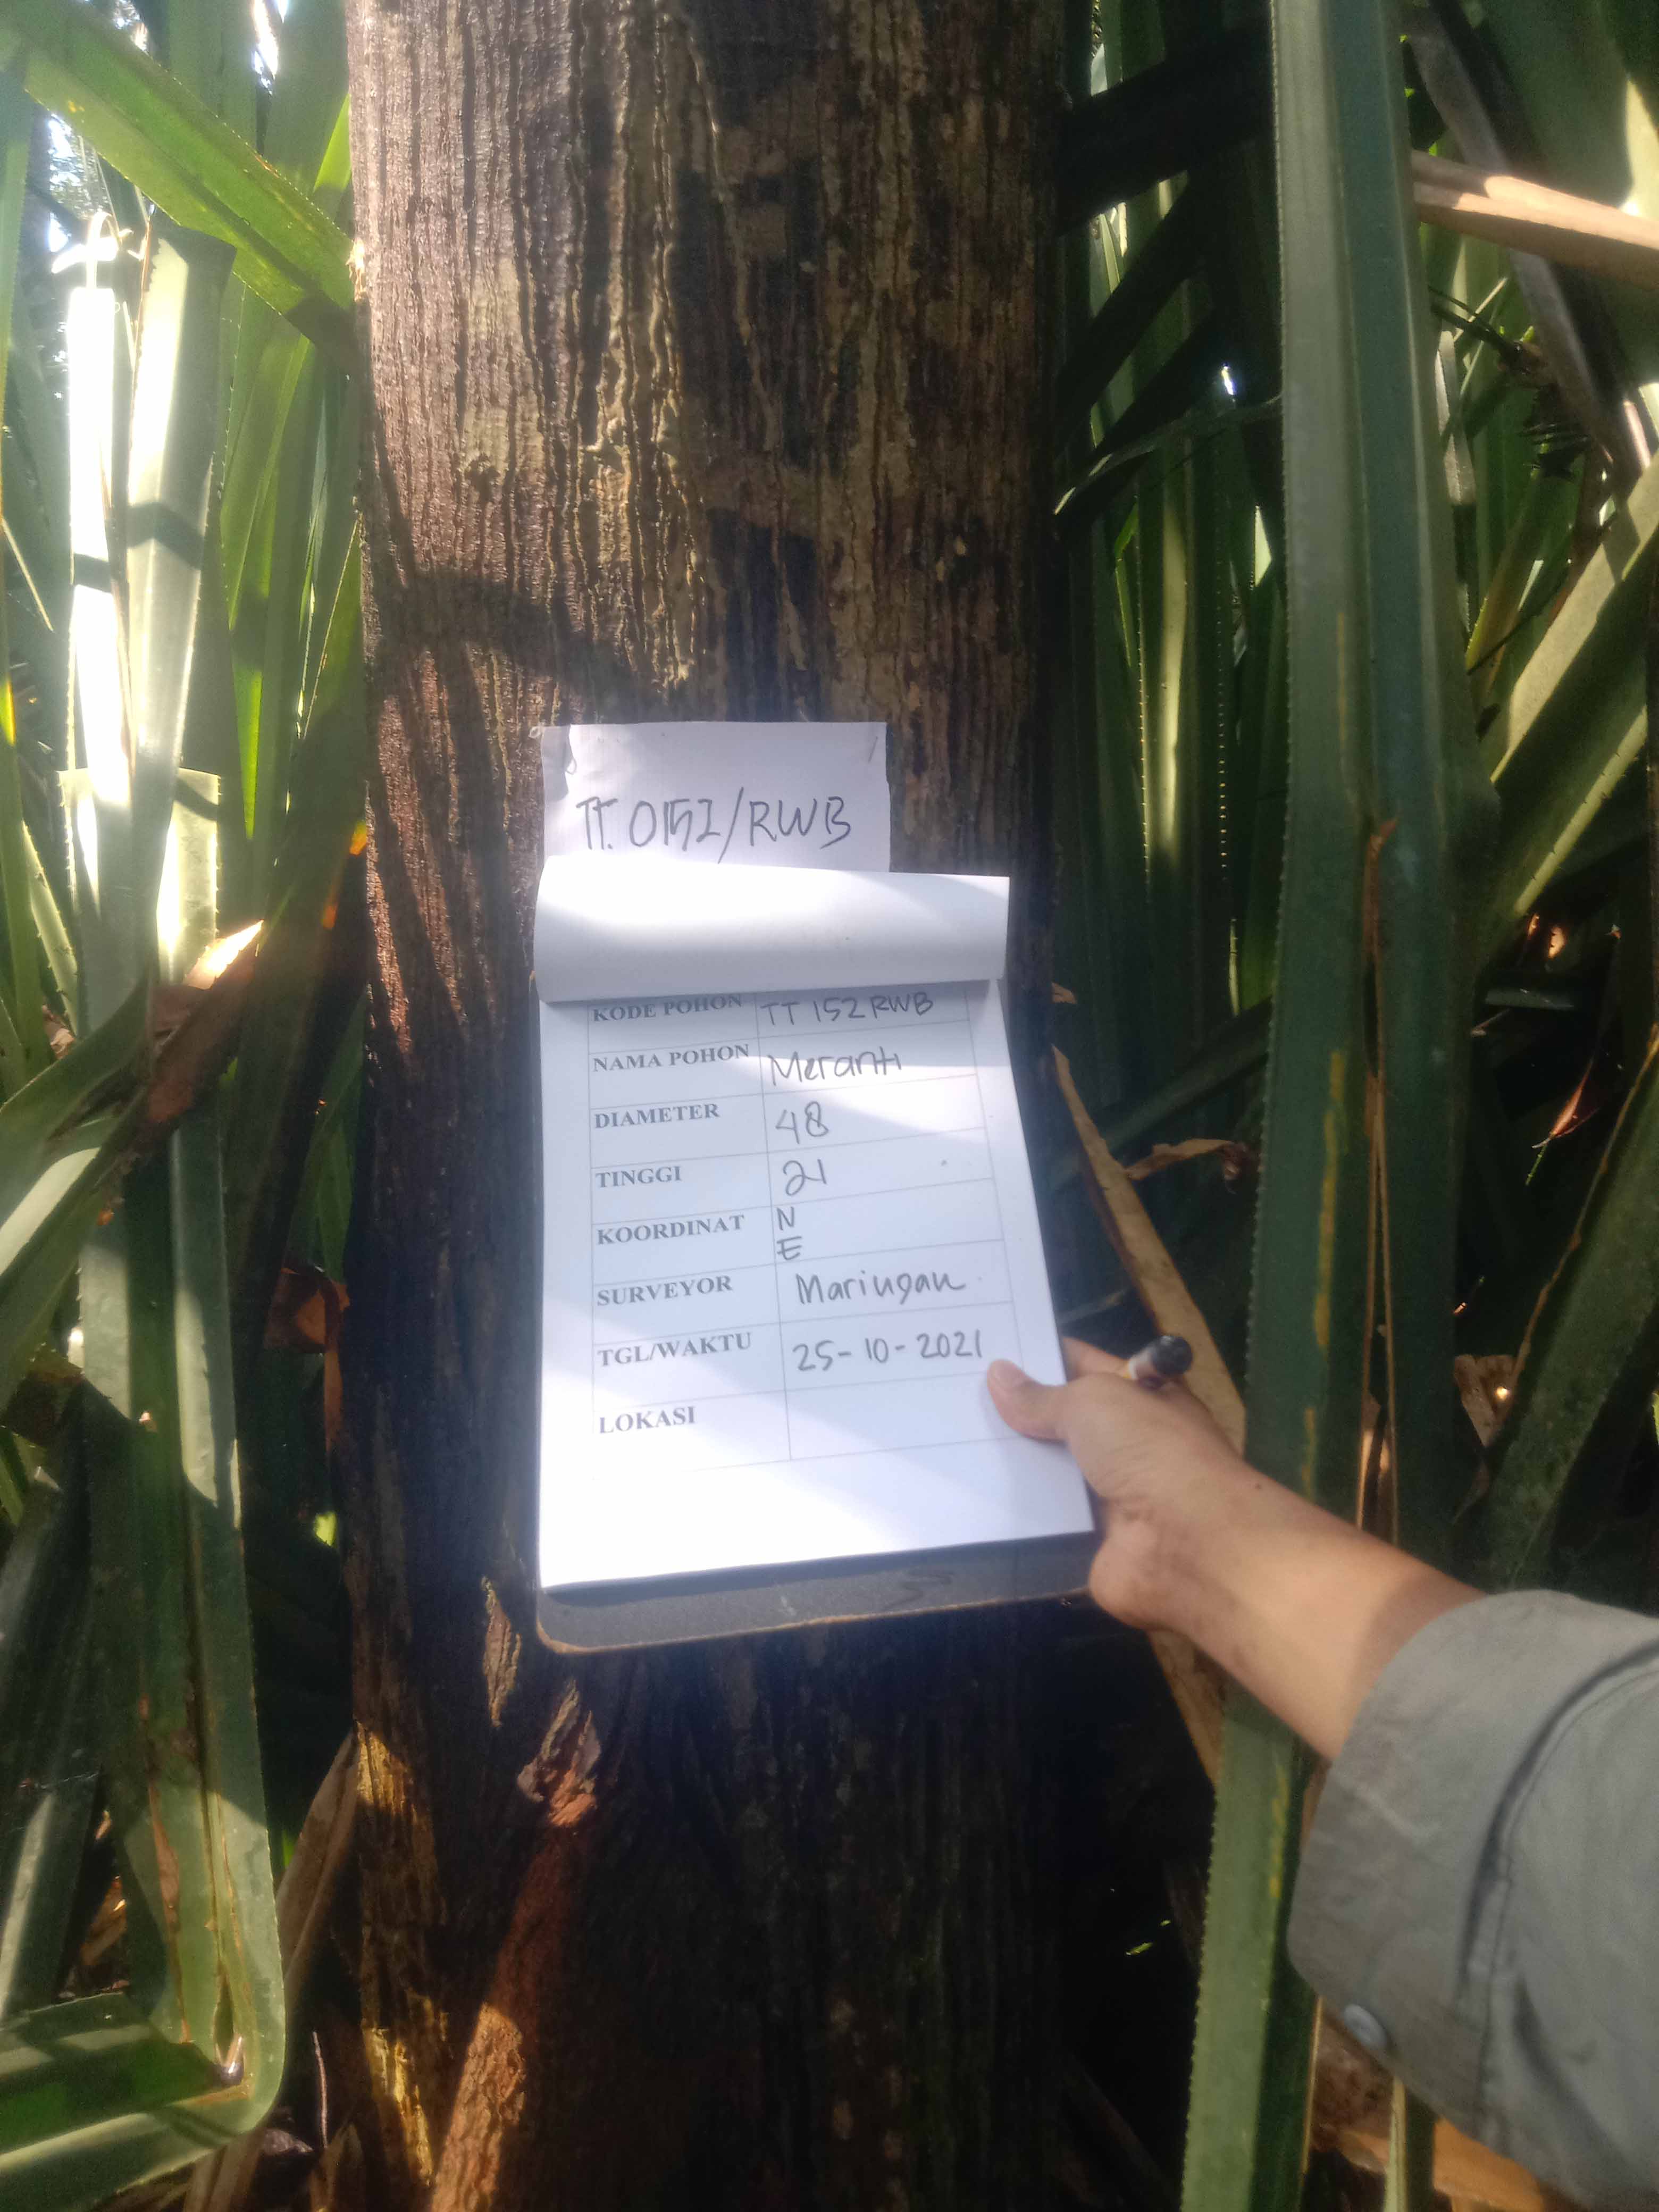 TT. 0152/RWB
KODE POHON TT 152 RWB
NAMA POHON Meranti
DIAMETER 48
TINGGI 21
KOORDINAT N
E
SURVEYOR Maringan
TGL/WAKTU 25-10-2021
LOKASI